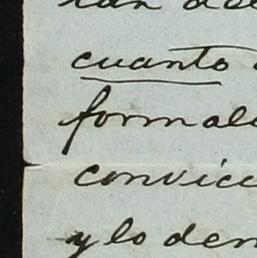 cuanto
formal
convicc
y lo dem